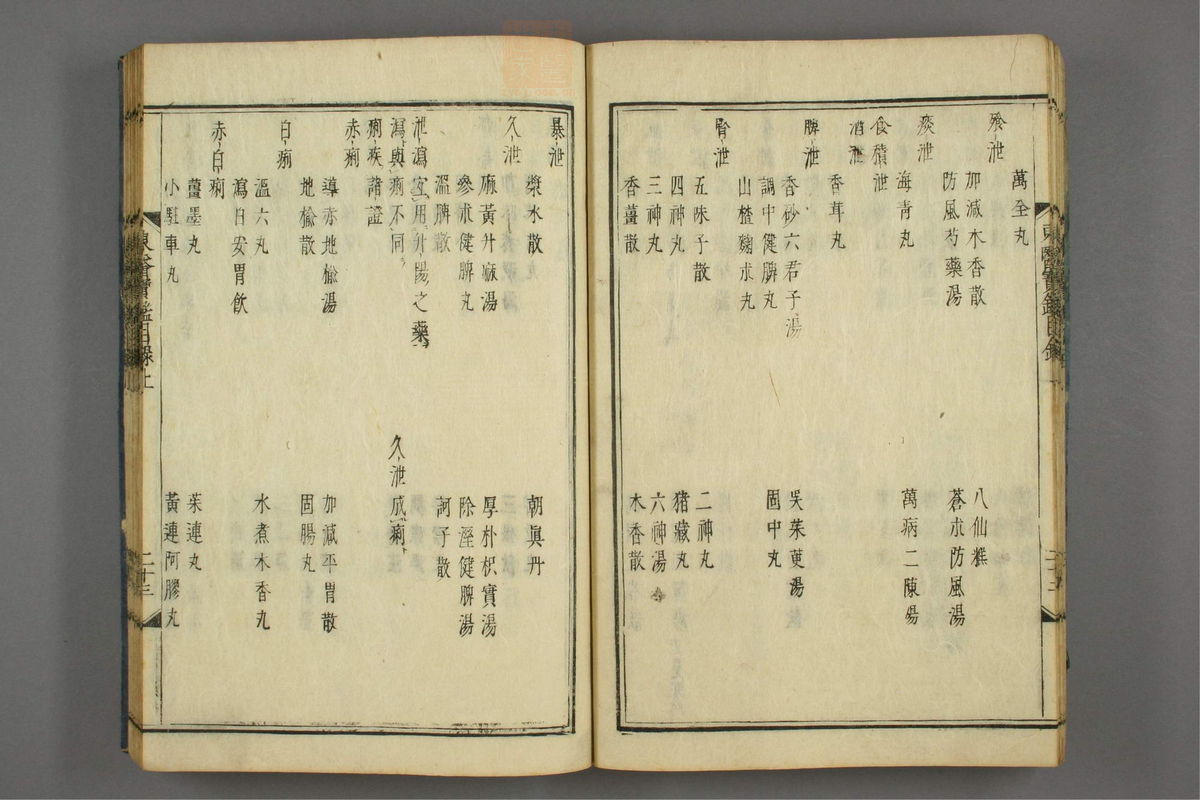 萬全丸
飱泄
加減木香散 八仙糕
防風芍藥湯 蒼朮防風湯
痰泄
海青丸 萬病二陳湯
食積泄
酒泄
香茸丸
脾泄
香砂六君子湯 吳茱萸湯
調中健脾丸 固中丸
山楂麴朮丸
腎泄
五味子散 二神丸
四神丸 猪臟丸
三神丸 六神湯
香薑散 木香散
暴泄
漿水散 朝眞丹
久泄
麻黃升麻湯 厚朴枳實湯
參朮健脾丸 除溼健脾湯
溫脾散 訶子散
泄瀉宜用升陽之藥
瀉與痢不同 久泄成痢
痢疾諸證
赤痢
導赤地楡湯 加減平胃散
地楡散 固腸丸
白痢
溫六丸 水煮木香丸
瀉白安胃飮
赤白痢
薑墨丸 茱連丸
小駐車丸 黃連阿膠丸
東醫寶鑑目錄上 二十三